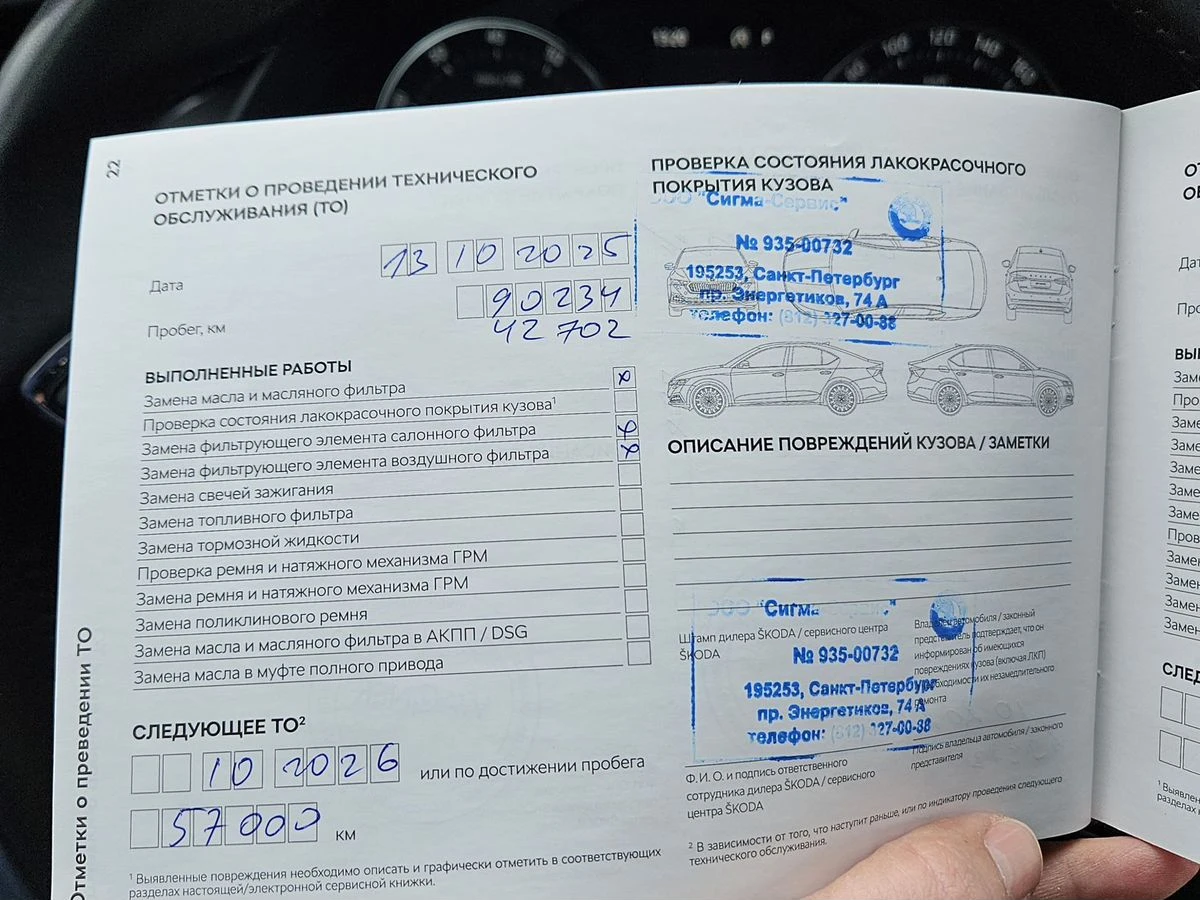 22
ОТМЕТКИ О ПРОВЕДЕНИИ ТЕХНИЧЕСКОГО
ОБСЛУЖИВАНИЯ (ТО)
Дата
13 10 2025
Пробег, км
90234
42 702
ВЫПОЛНЕННЫЕ РАБОТЫ
Замена масла и масляного фильтра x
Проверка состояния лакокрасочного покрытия кузова¹
Замена фильтрующего элемента салонного фильтра x
Замена фильтрующего элемента воздушного фильтра x
Замена свечей зажигания
Замена топливного фильтра
Замена тормозной жидкости
Проверка ремня и натяжного механизма ГРМ
Замена ремня и натяжного механизма ГРМ
Замена поликлинового ремня
Замена масла и масляного фильтра в АКПП / DSG
Замена масла в муфте полного привода
СЛЕДУЮЩЕЕ ТО²
10 2026 или по достижении пробега
57000 км
¹ Выявленные повреждения необходимо описать и графически отметить в соответствующих
разделах настоящей/электронной сервисной книжки.
Отметки о преведении ТО
ПРОВЕРКА СОСТОЯНИЯ ЛАКОКРАСОЧНОГО
ПОКРЫТИЯ КУЗОВА
ООО "Сигма-Сервис"
№ 935-00732
195253, Санкт-Петербург
пр. Энергетиков, 74 А
телефон: (812) 327-00-88
ОПИСАНИЕ ПОВРЕЖДЕНИЙ КУЗОВА / ЗАМЕТКИ
Штамп дилера ŠKODA / сервисного центра
ŠKODA
Владелец автомобиля / законный
представитель подтверждает, что он
информирован об имеющихся
повреждениях кузова (включая ЛКП)
необходимости их незамедлительного
ремонта
ООО "Сигма
№ 935-00732
195253, Санкт-Петербург
пр. Энергетиков, 74 А
телефон: (812) 327-00-88
Ф. И. О. и подпись ответственного
сотрудника дилера ŠKODA / сервисного
центра ŠKODA
Подпись владельца автомобиля / законного
представителя
² В зависимости от того, что наступит раньше, или по индикатору проведения следующего
технического обслуживания.
100 120 140